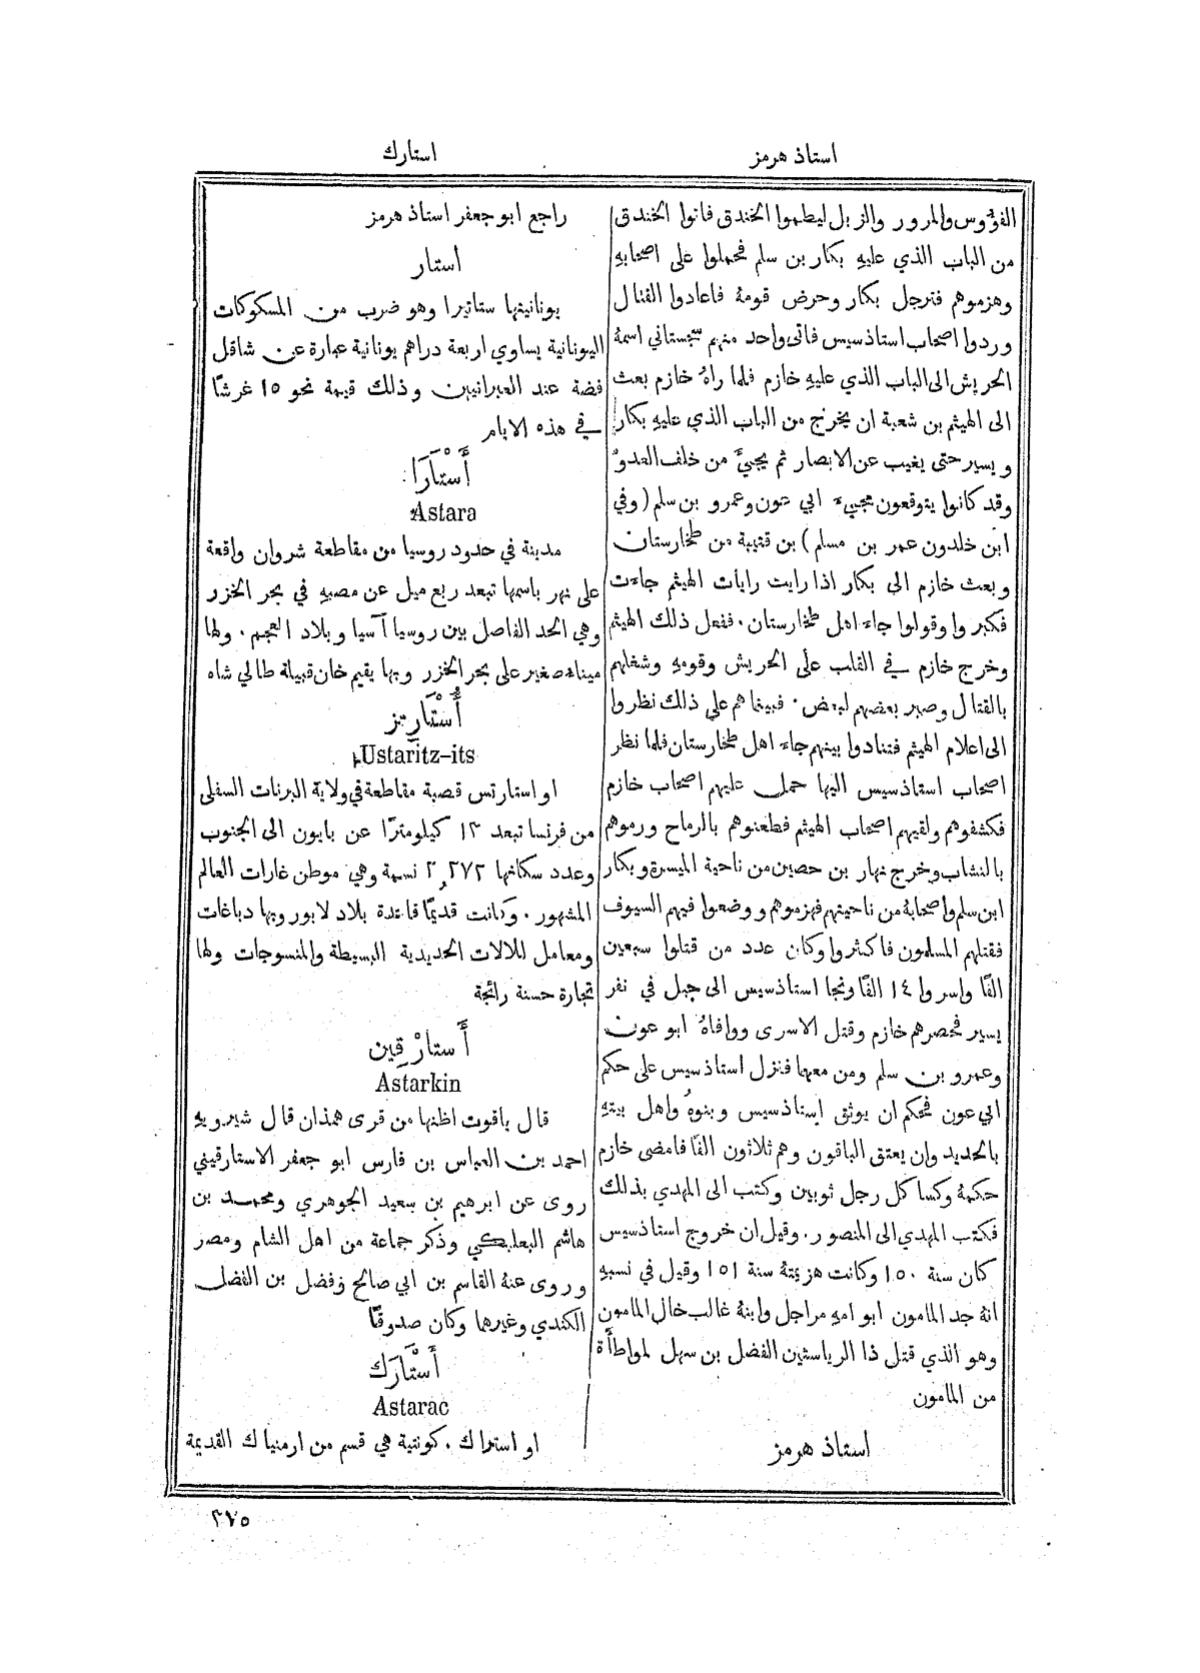 استاذ هرمز
استارك
الفؤوس والمرور والزبل ليطموا الخندق فاتوا الخندق
من الباب الذي عليهِ بكار بن سلم فحملوا على اصحابهِ
وهزموهم فترجل بكار وحرض قومهُ فاعادوا القتال
وردوا اصحاب استاذسيس فاتى واحد منهم سجستاني اسمهُ
الحريش الى الباب الذي عليهِ خازم فلما راهُ خازم بعث
الى الهيثم بن شعبة ان يخرج من الباب الذي عليهِ بكار
ويسير حتى يغيب عن الابصار ثم يجيَّ من خلف العدوّ
وقد كانوا يتوقعون مجيء ابي عون وعمرو بن سلم (وفي
ابن خلدون عمر بن مسلم) بن قتيبة من طخارستان
وبعث خازم الى بكار اذا رايت رايات الهيثم جاءت
فكبروا وقولوا جاء اهل طخارستان. ففعل ذلك الهيثم
وخرج خازم في القلب على الحريش وقومهِ وشغلهم
بالقتال وصبر بعضهم لبعض. فبينما هم على ذلك نظروا
الى اعلام الهيثم فتنادوا بينهم جاء اهل طخارستان فلما نظر
اصحاب استاذسيس اليها حمل عليهم اصحاب خازم
فكشفوهم ولقيهم اصحاب الهيثم فطعنوهم بالرماح ورموهم
بالنشاب وخرج نهار بن حصين من ناحية الميسرة وبكار
ابن سلم واصحابهُ من ناحيتهم فهزموهم ووضعوا فيهم السيوف
فقتلهم المسلمون فاكثروا وكان عدد من قتلوا سبعين
الفًا واسروا ١٤ الفًا ونجا استاذسيس الى جبل في نفر
يسير فحصرهم خازم وقتل الاسرى ووافاهُ ابو عون
وعمرو بن سلم ومن معهما فنزل استاذسيس على حكم
ابي عون فحكم ان يوثق استاذسيس وبنوهُ واهل بيتهِ
بالحديد وان يعتق الباقون وهم ثلاثون الفًا فامضى خازم
حكمهُ وكسا كل رجل ثوبين وكتب الى المهدي بذلك
فكتب المهدي الى المنصور. وقيل ان خروج استاذسيس
كان سنة ١٥٠ وكانت هزيمتهُ سنة ١٥١ وقيل في نسبهِ
انهُ جد المامون ابو امهِ مراجل وابنهُ غالب خال المامون
وهو الذي قتل ذا الرياستين الفضل بن سهل لمواطأة
من المامون
استاذ هرمز
راجع ابو جعفر استاذ هرمز
أستار
يونانيتها ستاتيرا وهو ضرب من المسكوكات
اليونانية يساوي اربعة دراهم يونانية عبارة عن شاقل
فضة عند العبرانيين وذلك قيمة نحو ١٥ غرشًا
في هذه الايام
أَسْتَارَا
Astara
مدينة في حدود روسيا من مقاطعة شروان واقعة
على نهر باسمها تبعد ربع ميل عن مصبهِ في بحر الخزر
وهي الحد الفاصل بين روسيا آسيا وبلاد العجم. ولها
ميناء صغير على بحر الخزر وبها يقيم خان قبيلة طالي شاه
أُسْتَارِتز
Ustaritz-its
او استارتس قصبة مقاطعة في ولاية البرنات السفلى
من فرنسا تبعد ١٣ كيلومترًا عن بايون الى الجنوب
وعدد سكانها ٢,٢٧٢ نسمة وهي موطن غارات العالم
المشهور. وكانت قديمًا قاعدة بلاد لابور وبها دباغات
ومعامل للالات الحديدية البسيطة والمنسوجات ولها
تجارة حسنة رائجة
أَستارْقِين
Astarkin
قال ياقوت اظنها من قرى همذان قال شيرويه
احمد بن العباس بن فارس ابو جعفر الاستارقيني
روى عن ابرهيم بن سعيد الجوهري ومحمد بن
هاشم البعلبكي وذكر جماعة من اهل الشام ومصر
وروى عنهُ القاسم بن ابي صالح وفضل بن الفضل
الكندي وغيرها وكان صدوقًا
أَسْتَارَك
Astarac
او استراك. كونتية هي قسم من ارمنياك القديمة
٣٧٥